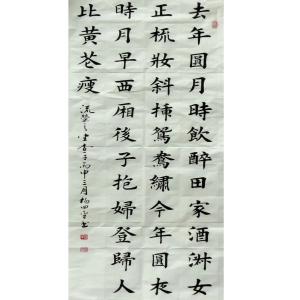 去年圓月時飲醉田家酒洲女
正梳妝斜插鴛鴦繡今年圓夜
時月早西廂後子抱婦登歸人
比黃花瘦
流螢之生查子丙申三月楊